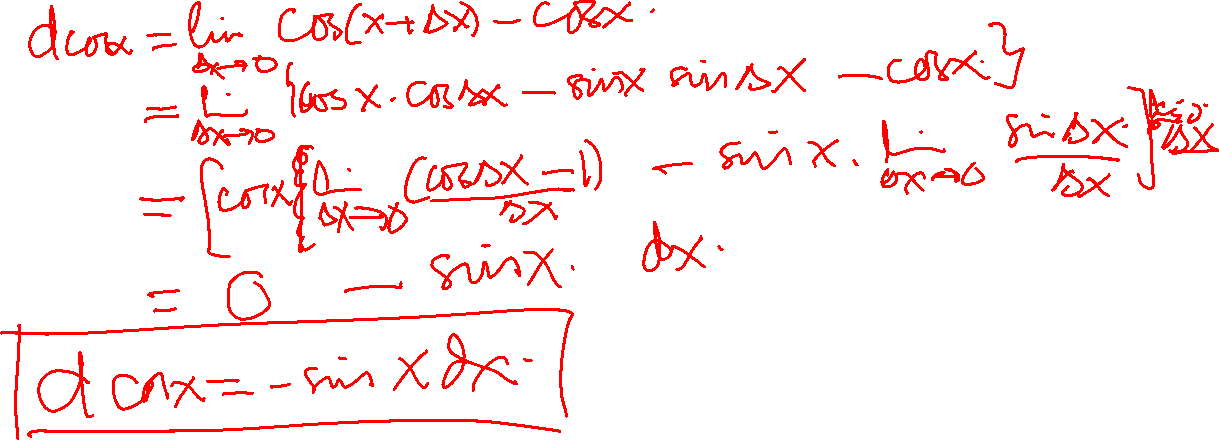 d cosx = lim Δx→0 cos(x+Δx) - cosx.
= L Δx→0 {cosx . cosΔx - sinx sinΔx - cosx.}
= [cosx { L Δx→0 (cosΔx - 1)/Δx - sin x . L Δx→0 sinΔx/Δx ] Δx
= 0 - sinx. dx.
d cosx = - sin x dx.